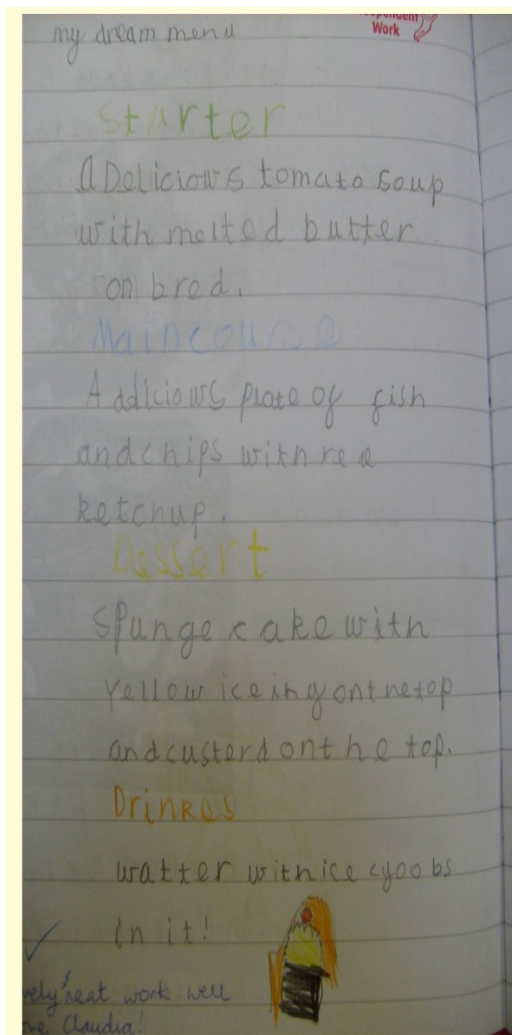 my dream menu
Work
Starter
a Delicious tomato soup
with melted butter
on bred.
Maincourse
A ddicious plate of fish
and chips with red
ketchup.
Dessert
spunge cake with
yellow iceing on the top
and custerd on the top.
Drinkes
watter with ice cyoobs
in it!
neat work well
Claudia!